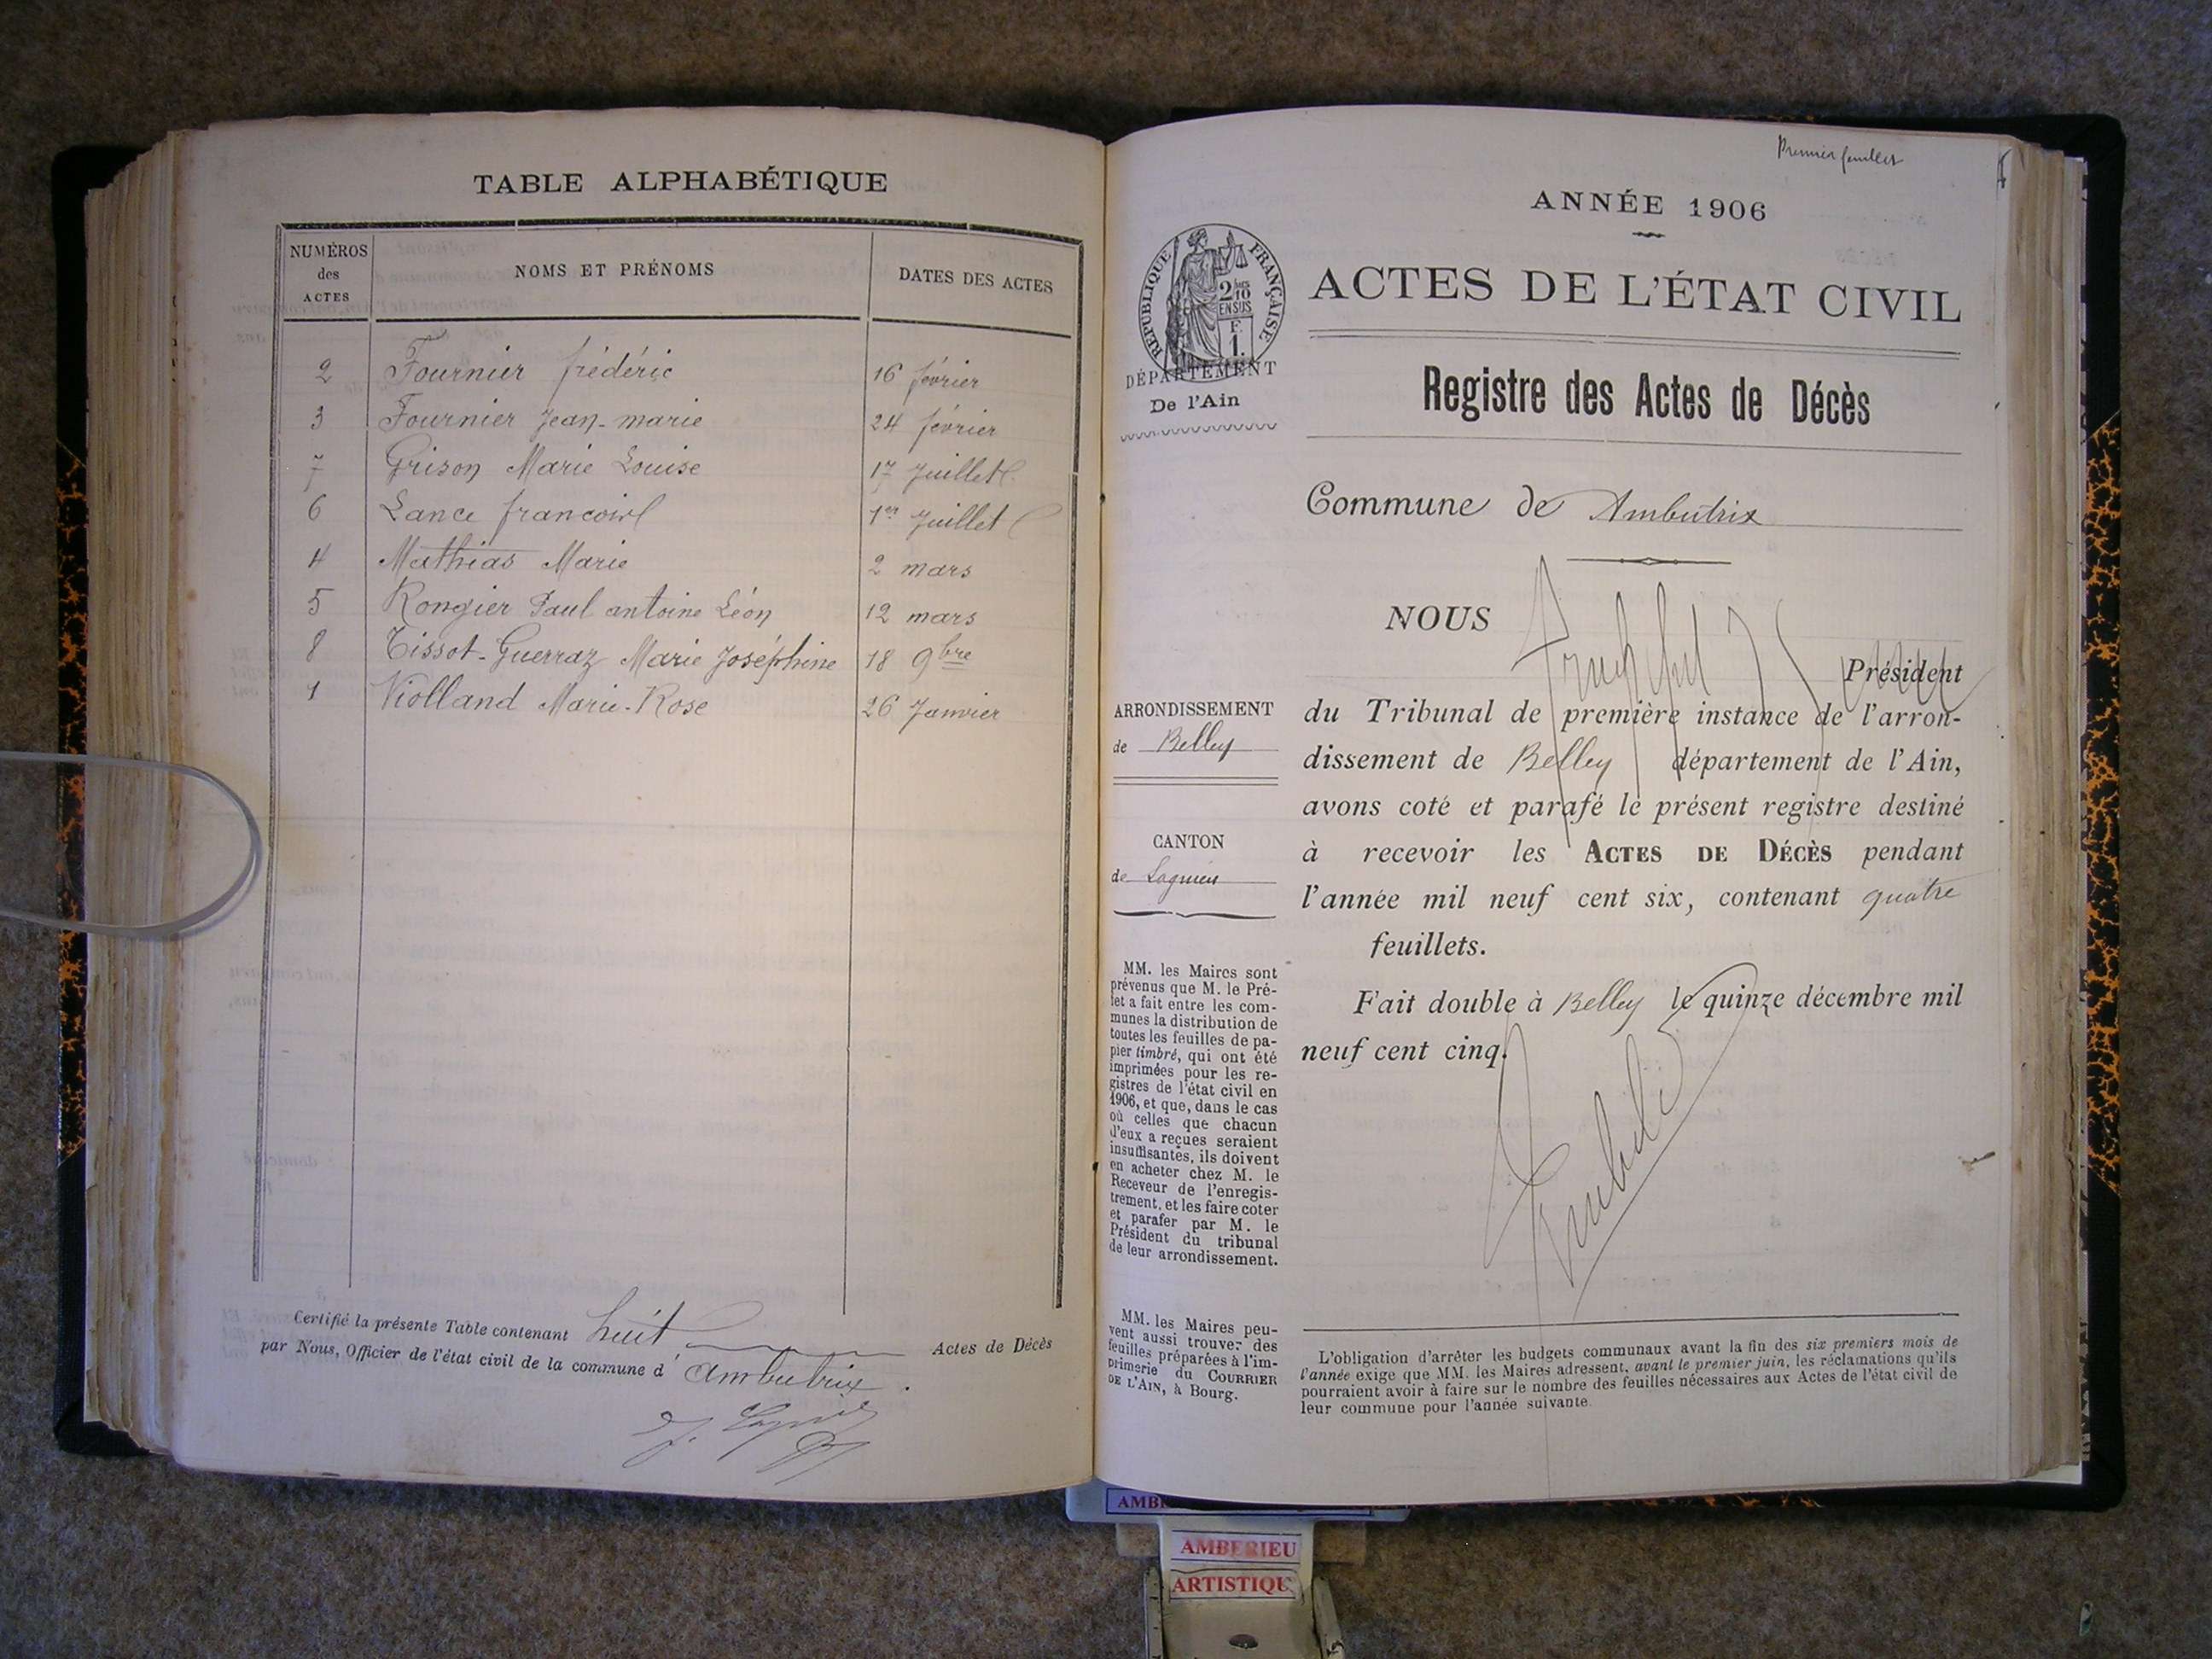 TABLE ALPHABÉTIQUE
NUMÉROS
des
ACTES
NOMS ET PRÉNOMS
DATES DES ACTES
2 Fournier frédéric 16 février
3 Fournier Jean-marie 24 février
7 Grison Marie Louise 17 Juillet
6 Lance francois 1er Juillet
4 Mathias Marie 2 mars
5 Rongier Paul antoine Léon 12 mars
8 Tissot-Guerraz Marie Joséphine 18 9bre
1 Violland Marie-Rose 26 Janvier
Certifié la présente Table contenant huit Actes de Décès
par Nous, Officier de l'état civil de la commune d'Ambutrix.
Premier feuillet
ANNÉE 1906
RÉPUBLIQUE FRANÇAISE
2/10
EN SUS
F.
1.
DÉPARTEMENT
De l'Ain
ACTES DE L'ÉTAT CIVIL
Registre des Actes de Décès
Commune de Ambutrix
NOUS
Président
du Tribunal de première instance de l'arron-
dissement de Belley département de l'Ain,
avons coté et parafé le présent registre destiné
à recevoir les ACTES DE DÉCÈS pendant
l'année mil neuf cent six, contenant quatre
feuillets.
Fait double à Belley le quinze décembre mil
neuf cent cinq.
ARRONDISSEMENT
de Belley
CANTON
de Lagnieu
MM. les Maires sont
prévenus que M. le Pré-
fet a fait entre les com-
munes la distribution de
toutes les feuilles de pa-
pier timbré, qui ont été
imprimées pour les re-
gistres de l'état civil en
1906, et que, dans le cas
où celles que chacun
d'eux a reçues seraient
insuffisantes, ils doivent
en acheter chez M. le
Receveur de l'enregis-
trement, et les faire coter
et parafer par M. le
Président du tribunal
de leur arrondissement.
MM. les Maires peu-
vent aussi trouver des
feuilles préparées à l'im-
primerie du COURRIER
DE L'AIN, à Bourg.
L'obligation d'arrêter les budgets communaux avant la fin des six premiers mois de
l'année exige que MM. les Maires adressent, avant le premier juin, les réclamations qu'ils
pourraient avoir à faire sur le nombre des feuilles nécessaires aux Actes de l'état civil de
leur commune pour l'année suivante.
AMBERIEU
ARTISTIQU